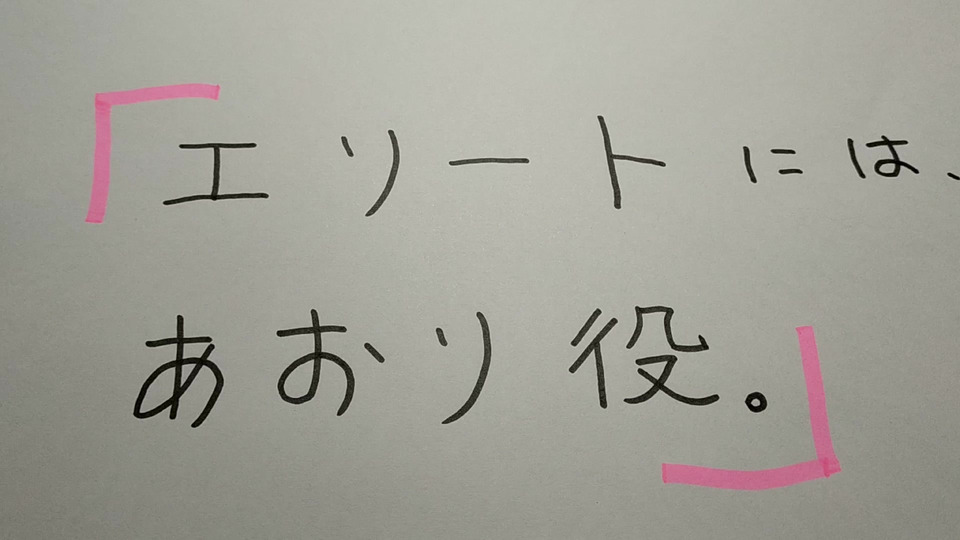 「エリートには、
あおり役。」